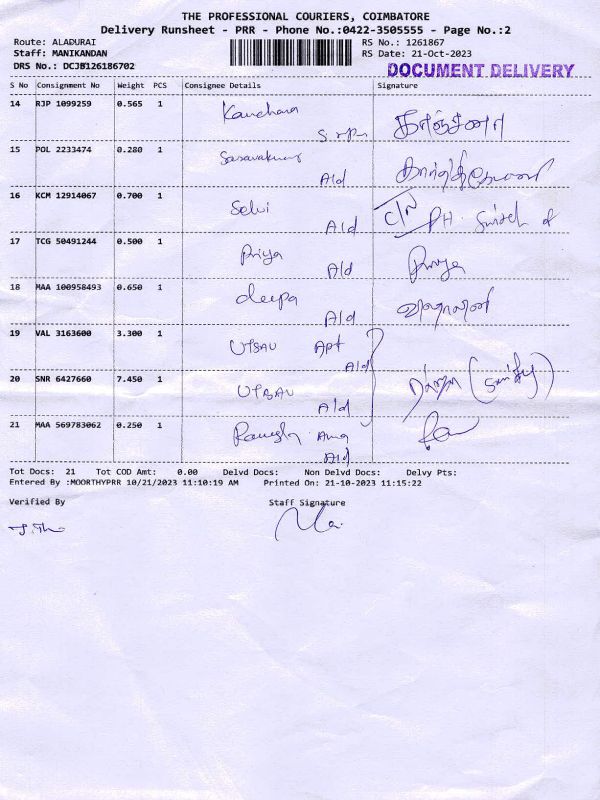 THE PROFESSIONAL COURIERS, COIMBATORE
Delivery Runsheet - PRR - Phone No.:0422-3505555 - Page No.:2
Route: ALADURAI
RS No.: 1261867
Staff: MANIKANDAN
RS Date: 21-Oct-2023
DRS No.: DCJB126186702
DOCUMENT DELIVERY
S No Consignment No Weight PCS Consignee Details Signature
14 RJP 1099259 0.565 1 Kanchana காஞ்சனா
15 POL 2233474 0.280 1 Saravakumar
Ald
16 KCM 12914067 0.700 1 Selvi C/N PH. Switch of
Ald
17 TCG 50491244 0.500 1 Priya Priya
Ald
18 MAA 100958493 0.650 1 deepa
Ald
19 VAL 3163600 3.300 1 UTSAV Apt
Ald
20 SNR 6427660 7.450 1 UTSAV
Ald
21 MAA 569783062 0.250 1 Ramesh
Ald
Tot Docs: 21 Tot COD Amt: 0.00 Delvd Docs: Non Delvd Docs: Delvy Pts:
Entered By :MOORTHYPRR 10/21/2023 11:10:19 AM Printed On: 21-10-2023 11:15:22
Verified By Staff Signature